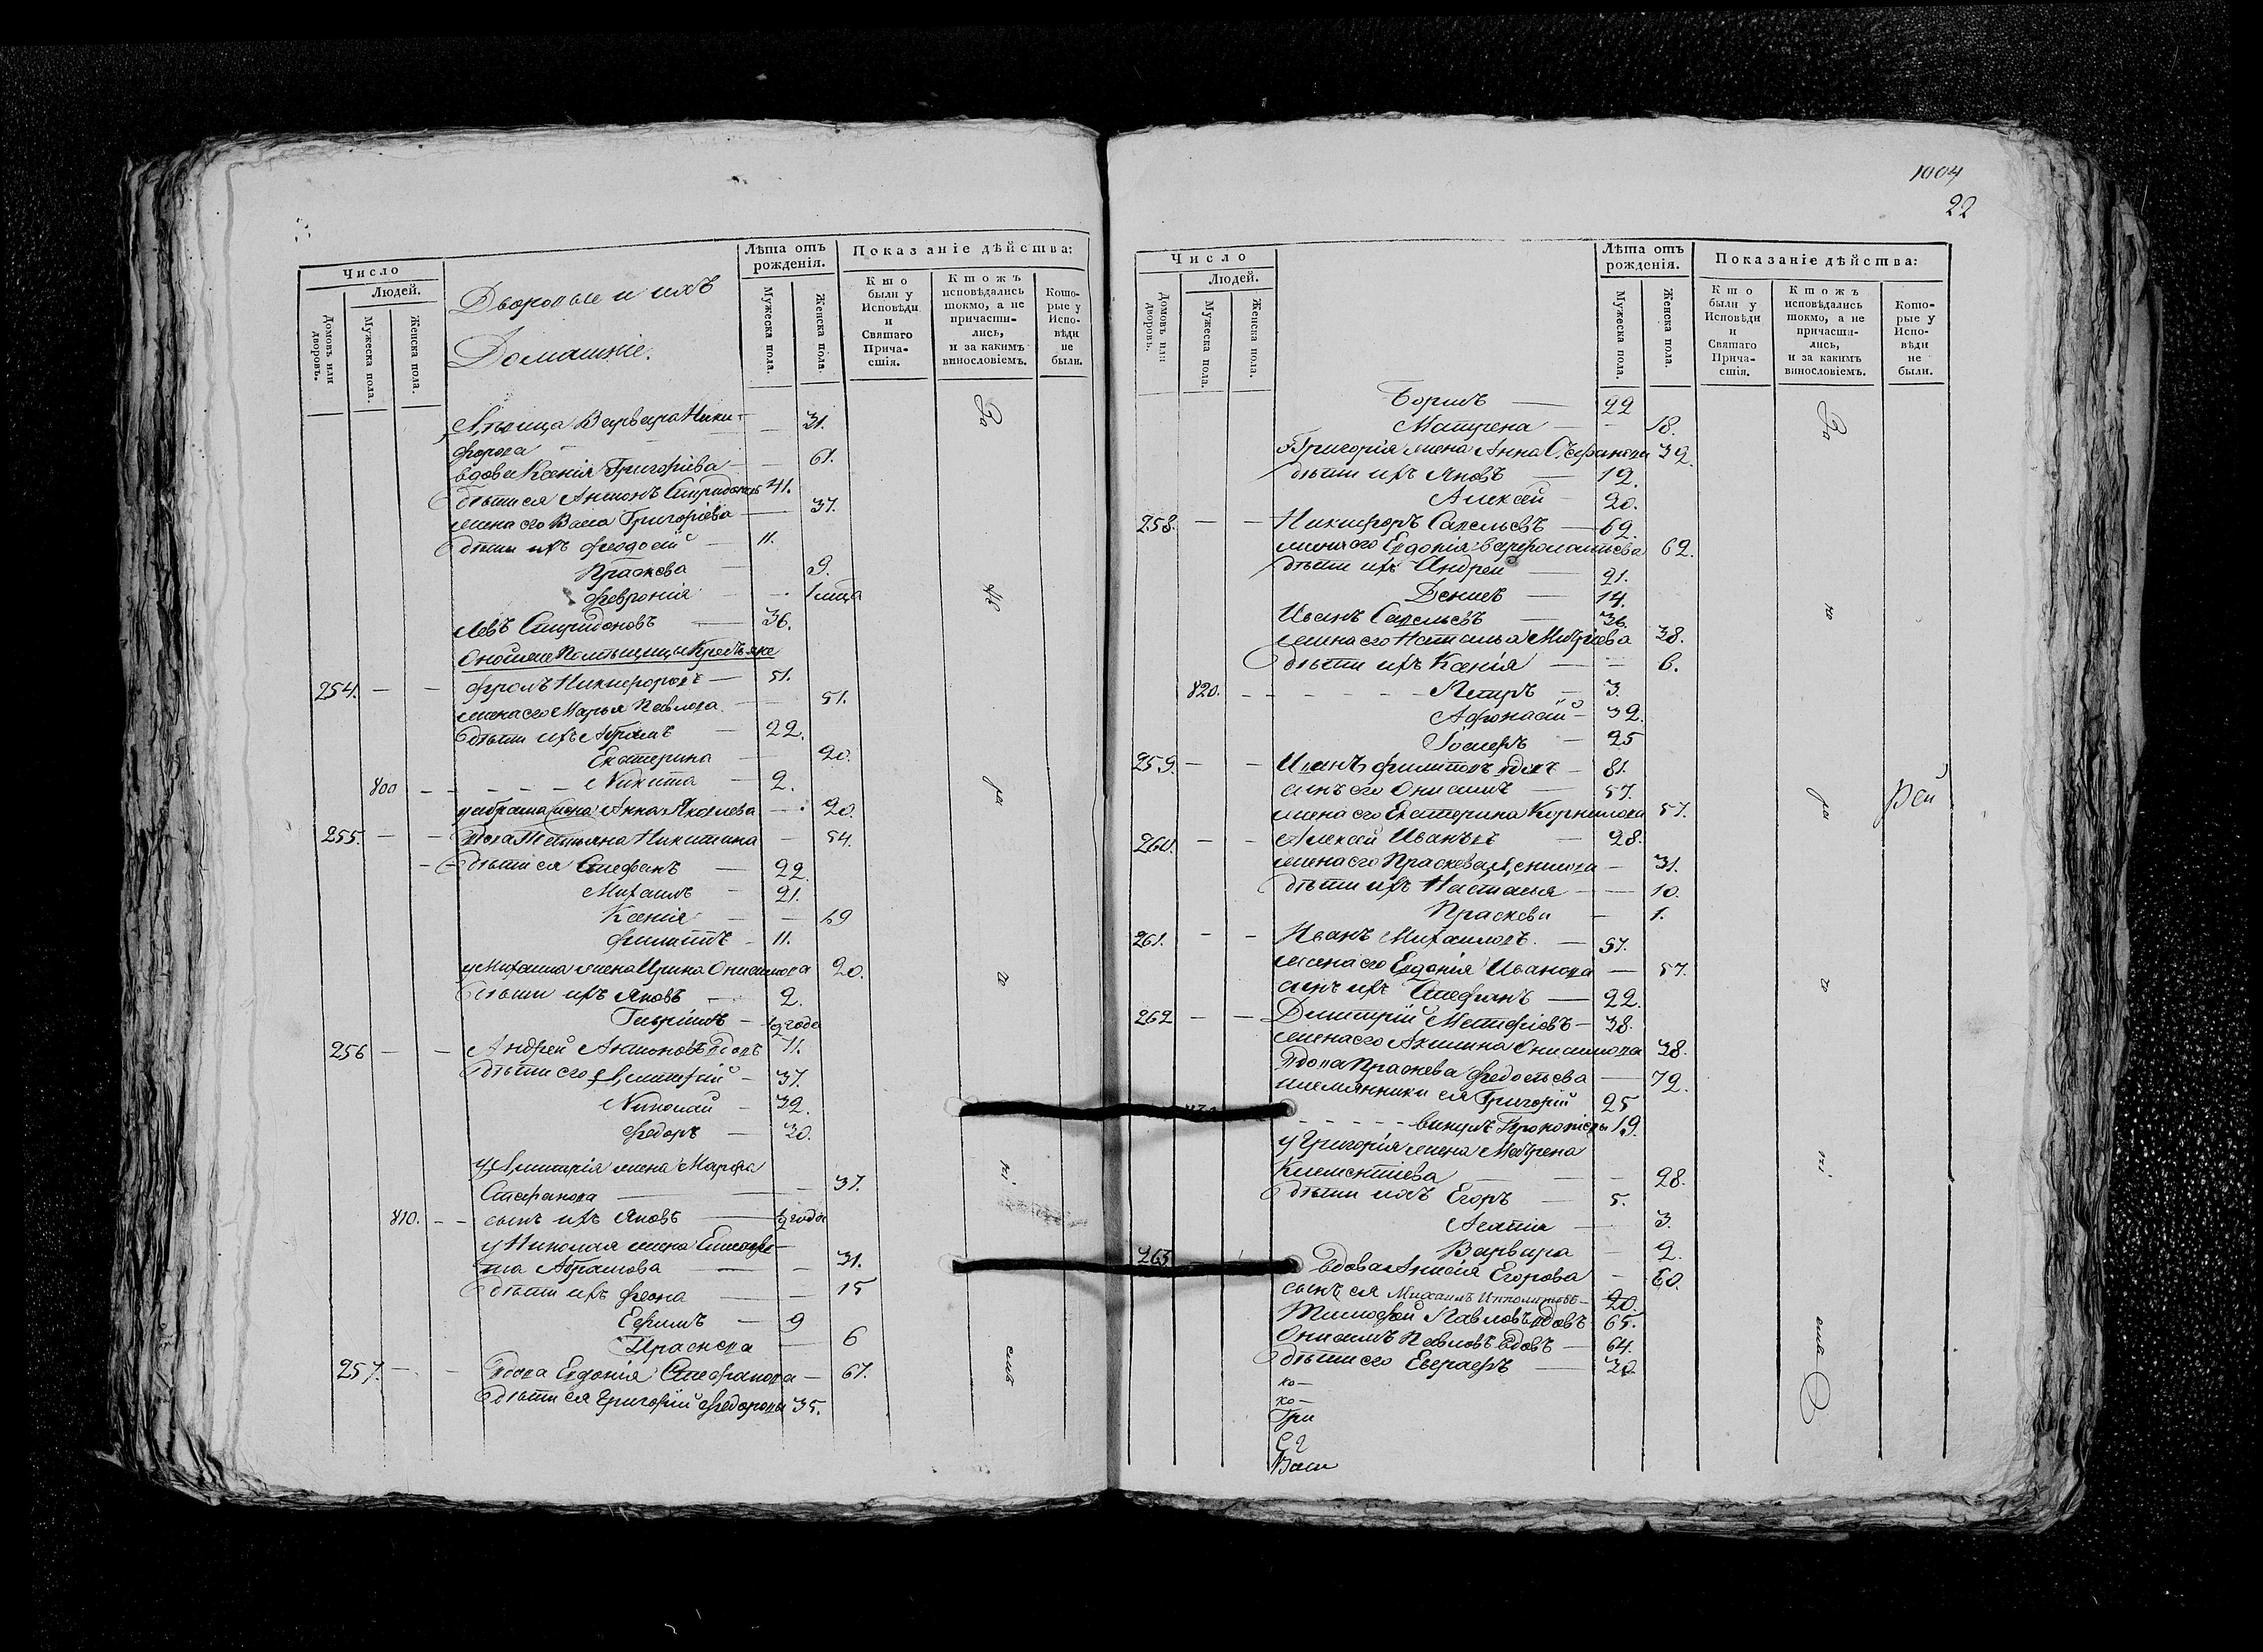 Число
Людей.
Домовъ или дворовъ.
Мужеска пола.
Женска пола.
Дворовые и ихъ
Домашніе.
Лѣта отъ рожденія.
Мужеска пола.
Женска пола.
Показаніе дѣйства:
Кто были у Исповѣди и Святаго Прича-стія.
Ктожъ исповѣдались токмо, а не причасти-лись, и за какимъ винословіемъ.
Кото-рые у Испо-вѣди не были.
Дѣвица Варвара Ники- 31.
форова
вдова Ксенія Григоріева 61.
дѣти ея Антонъ Спиридоновъ 41.
жена его Васа Григоріева 37.
дѣти ихъ Феодосій 11.
Праскева 9.
Феврония
Левъ Спиридоновъ 36.
Оной же Помѣщицы Крестьяне
254. Фролъ Никифоровъ 51.
жена его Марья Павлова 51.
дѣти ихъ Абрамъ 22.
Екатерина 20.
800 Никита 2.
у Абрама жена Анна Яковлева 20.
255. вдова Татьяна Никитина 54.
дѣти ея Стефанъ 22.
Михаилъ 21.
Ксенія 19
Филиппъ 11.
у Михаила жена Ирина Онисимова 20.
дѣти ихъ Яковъ 2.
Гавріилъ ½ года
256 Андрей Антоновъ вдовъ 71.
дѣти его Димитрій 37.
Николай 32.
Федоръ 30.
у Димитрія жена Марфа
Стефанова 37.
810. сынъ ихъ Яковъ ½ года
у Николая жена Елисаве-
та Абрамова 31.
дѣти ихъ Феона 15
Ефимъ 9
Праскева 6
257. вдова Евдокія Стефанова 67.
дѣти ея Григорій Федоровы 35.
1004
22
Число
Людей.
Домовъ или дворовъ.
Мужеска пола.
Женска пола.
Лѣта отъ рожденія.
Мужеска пола.
Женска пола.
Показаніе дѣйства:
Кто были у Исповѣди и Святаго Прича-стія.
Ктожъ исповѣдались токмо, а не причасти-лись, и за какимъ винословіемъ.
Кото-рые у Испо-вѣди не были.
Борисъ 22
Матрена 18.
Григорія жена Анна Стефанова 32.
дѣти ихъ Яковъ 12.
Алексей 20.
258. Никифоръ Савельевъ 62.
жена его Евдокія Варфоломѣева 62.
дѣти ихъ Андрей 21.
Денисъ 14.
Иванъ Савельевъ 36.
жена его Наталья Матвѣева 38.
дѣти ихъ Ксенія 6.
820. Петръ 3.
Афонасій 32.
25
259. Иванъ Филиповъ вдовъ 81.
сынъ его Онисимъ 57.
жена его Екатерина Корнилова 57.
260. Алексей Ивановъ 28.
жена его Праскева Денисова 31.
дѣти ихъ Настасья 10.
Праскева 1.
261. Иванъ Михаиловъ 57.
жена его Евдокія Иванова 57.
сынъ ихъ Стефанъ 22.
262 Димитрій 38.
жена его Акилина Онисимова 38.
вдова Праскева Федосѣева 72.
племянники ея Григорій 25
Викулъ Прокопіевы 19.
у Григорія жена Матрена
Клементіева 28.
дѣти ихъ Егоръ 5.
Агапія 3.
Варвара 2.
263 вдова Анисія Егорова 60.
сынъ ея Михаилъ Ипполитовъ 20.
Тимофей Павловъ вдовъ 65.
Онисимъ Павловъ вдовъ 64.
дѣти его Евграфъ 30
ко-
хо-
Гри
Васи